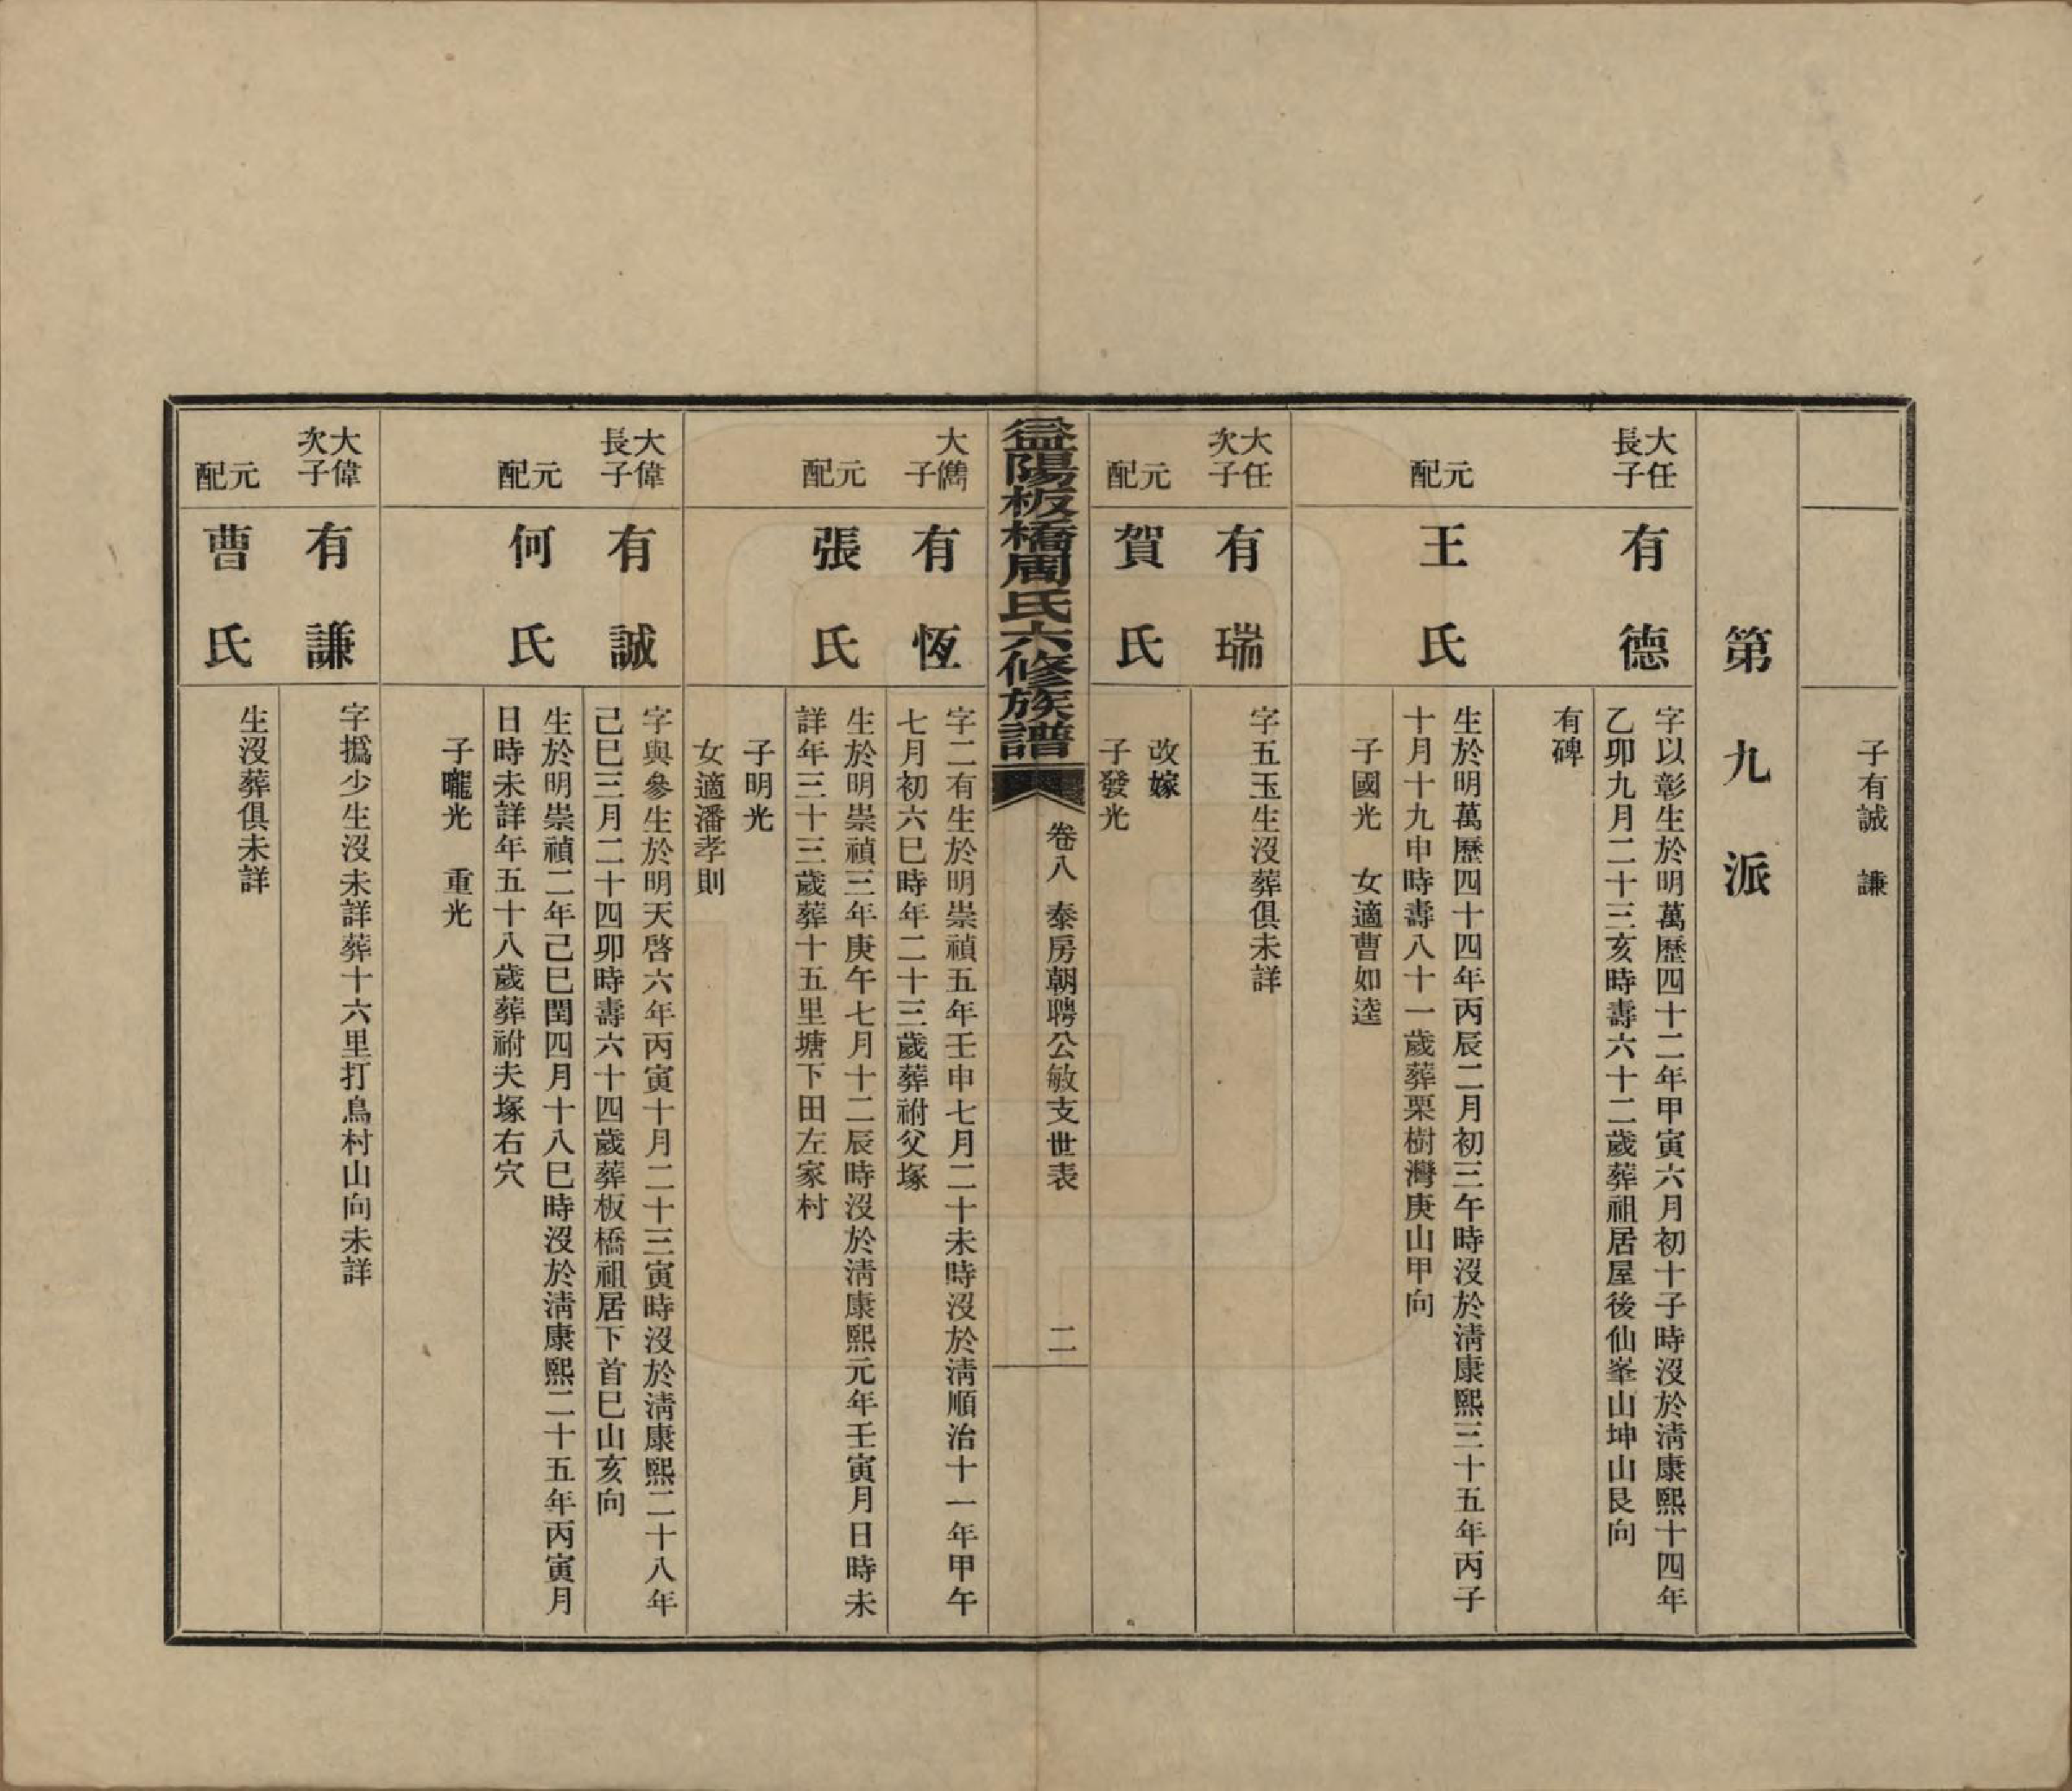 子有誠　謙
第九派
大任長子
有德
字以彰生於明萬歷四十二年甲寅六月初十子時沒於淸康熙十四年
乙卯九月二十三亥時壽六十二歲葬祖居屋後仙峯山坤山艮向
有碑
元配
王氏
生於明萬歷四十四年丙辰二月初三午時沒於淸康熙三十五年丙子
十月十九申時壽八十一歲葬栗樹灣庚山甲向
子國光　女適曹如逵
大任次子
有瑞
字五玉生沒葬俱未詳
元配
賀氏
改嫁
子發光
益陽板橋周氏六修族譜
卷八　泰房朝聘公敏支世表
二
大儁子
有恆
字二有生於明崇禎五年壬申七月二十未時沒於淸順治十一年甲午
七月初六巳時年二十三歲葬祔父塚
元配
張氏
生於明崇禎三年庚午七月十二辰時沒於淸康熙元年壬寅月日時未
詳年三十三歲葬十五里塘下田左家村
子明光
女適潘孝則
大偉長子
有誠
字與參生於明天啓六年丙寅十月二十三寅時沒於淸康熙二十八年
己巳三月二十四卯時壽六十四歲葬板橋祖居下首巳山亥向
元配
何氏
生於明崇禎二年己巳閏四月十八巳時沒於淸康熙二十五年丙寅月
日時未詳年五十八歲葬祔夫塚右穴
子曨光　重光
大偉次子
有謙
字撝少生沒未詳葬十六里打鳥村山向未詳
元配
曹氏
生沒葬俱未詳